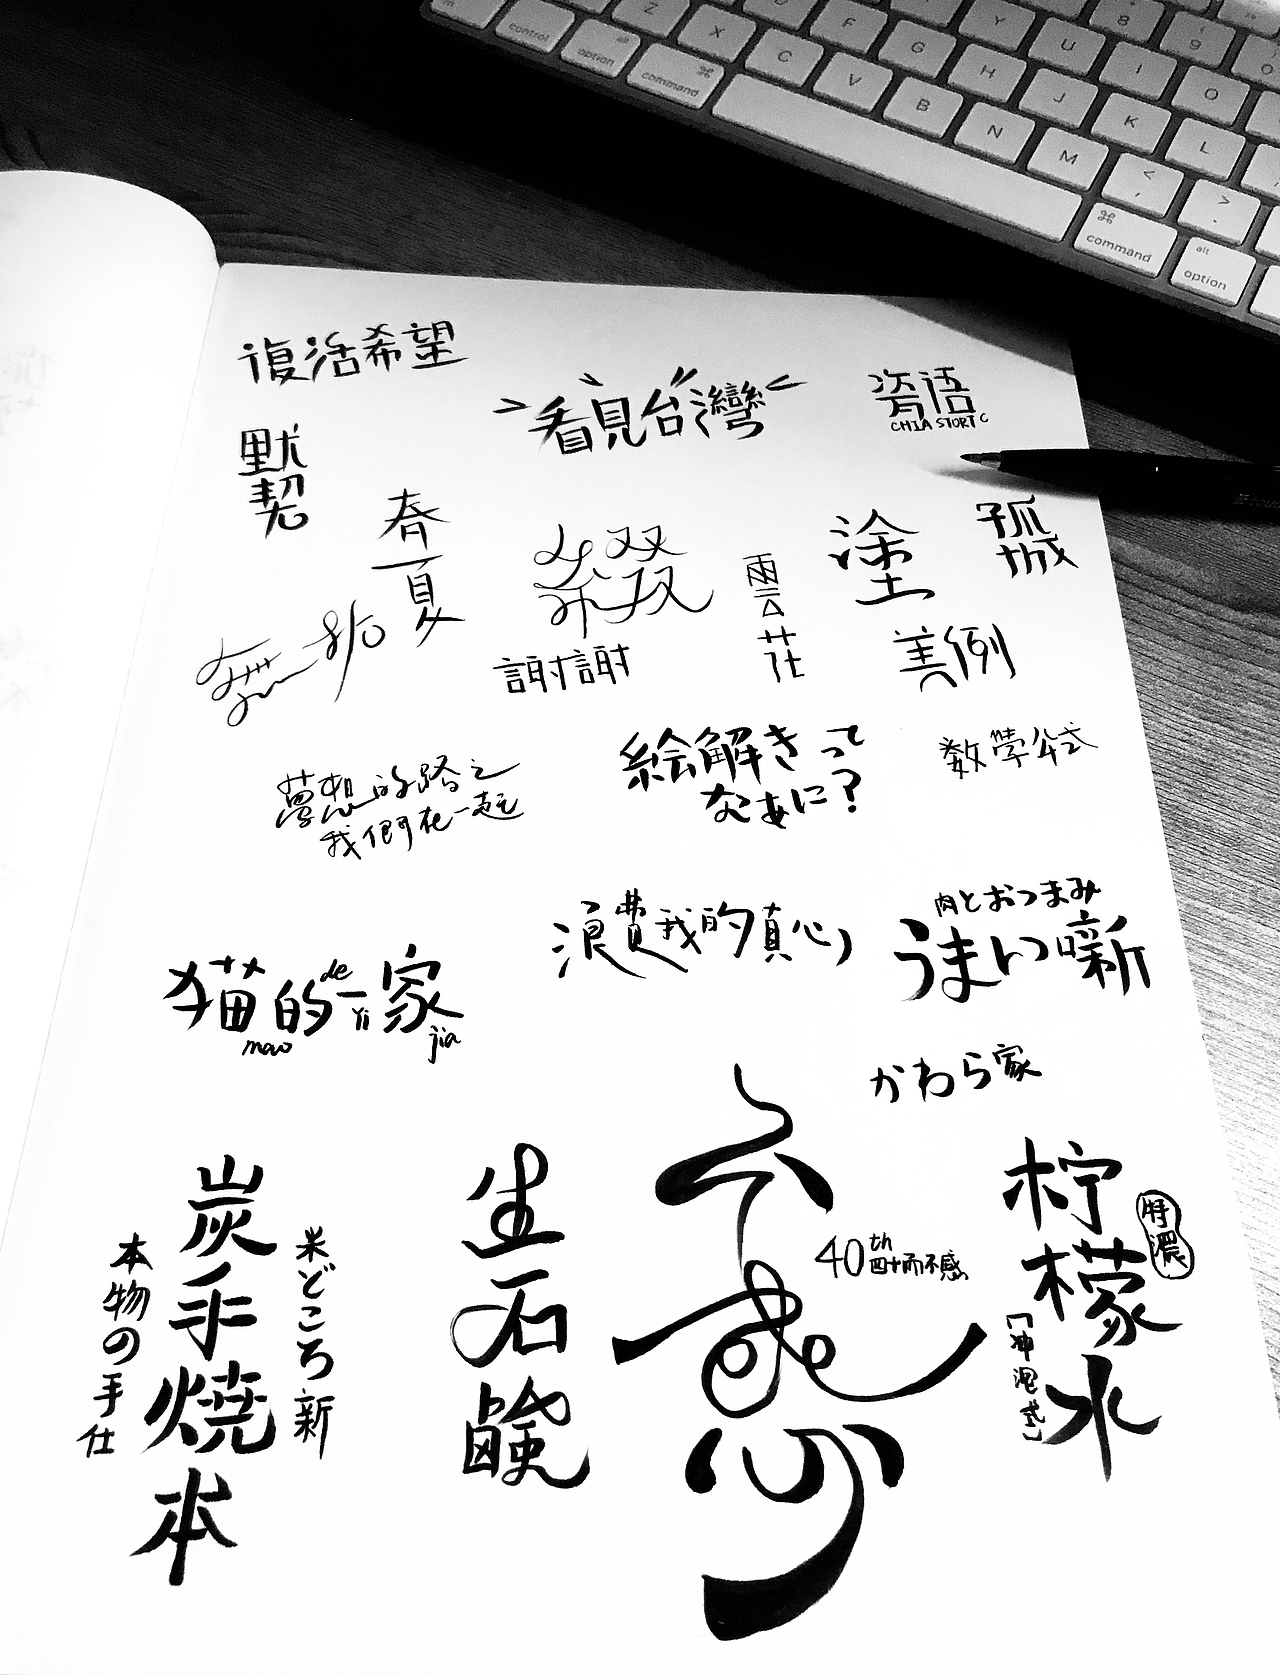 Z
X
C
V
B
N
M
F
G
H
J
K
L
Y
U
I
O
8
9
control
alt
option
command
⌘
<
,
>
.
⌘
command
alt
option
復活希望
看見台灣
瓷语
默契
春夏
孤城
塗
雲花
謝謝
美例
絵解きって
なあに?
数學公式
夢想的路上
我們在一起
浪費我的真心
肉とおつまみ
うまい噺
猫的一家
mao de Yi jia
かわら家
炭手焼本
米どころ新
本物の手仕
生石鹸
不惑
40th
四十而不惑
柠檬水
特濃
「冲泡式」